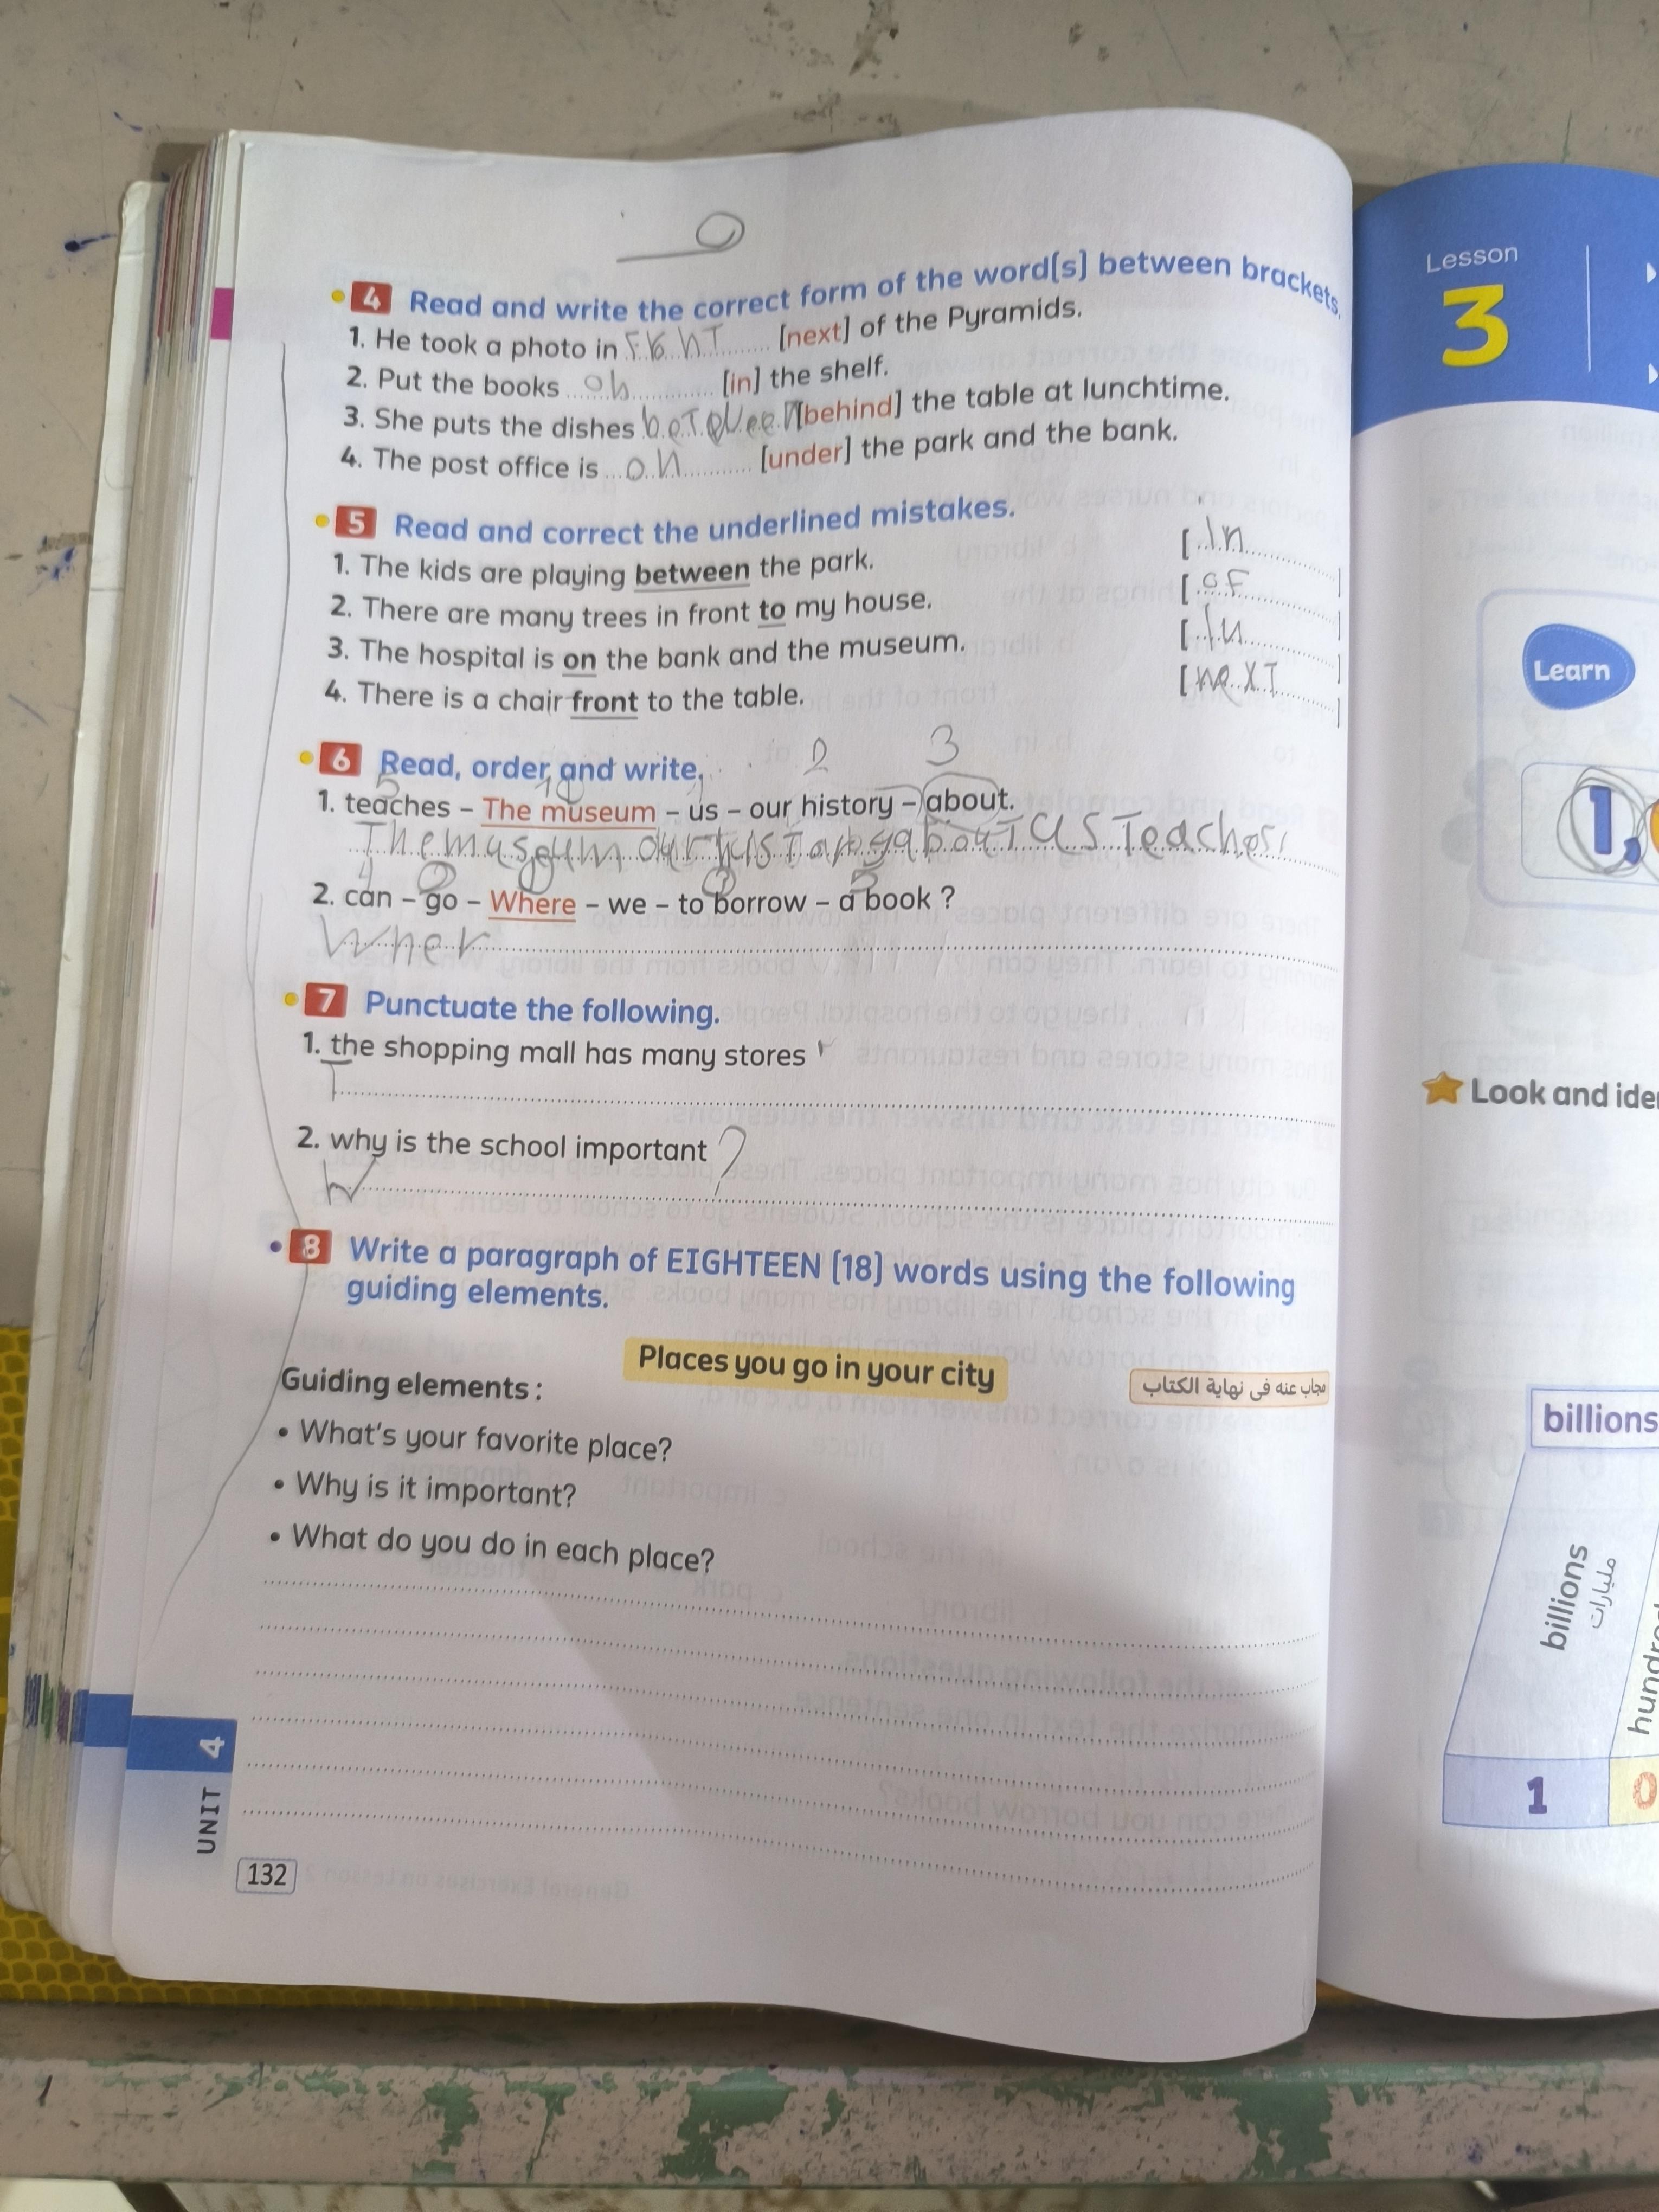 4 Read and write the correct form of the word(s) between brackets.
1. He took a photo in FRONT [next] of the Pyramids.
2. Put the books on [in] the shelf.
3. She puts the dishes beTween [behind] the table at lunchtime.
4. The post office is on [under] the park and the bank.
5 Read and correct the underlined mistakes.
1. The kids are playing between the park. [In]
2. There are many trees in front to my house. [oF]
3. The hospital is on the bank and the museum. [In]
4. There is a chair front to the table. [nexT]
2 3
6 Read, order and write.
1. teaches – The museum – us – our history – about.
The museum our hisTory abouT us Teaches
2. can – go – Where – we – to borrow – a book ?
Wher
7 Punctuate the following.
1. the shopping mall has many stores
T
2. why is the school important ?
W
8 Write a paragraph of EIGHTEEN (18) words using the following
guiding elements.
Places you go in your city
مجاب عنه فى نهاية الكتاب
Guiding elements :
• What's your favorite place?
• Why is it important?
• What do you do in each place?
UNIT 4
132
Lesson
3
Learn
1,
Look and
billions
billions
مليارات
1
0